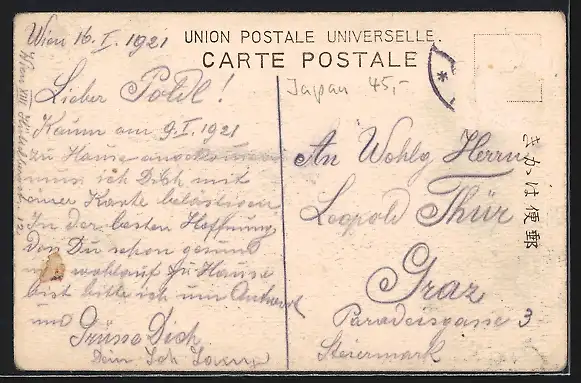 UNION POSTALE UNIVERSELLE.
CARTE POSTALE
Japan 45,-
Wien 16. I. 1921
Lieber Poldl!
Kaum am 9. I. 1921
zu Hause angekommen
muss ich Dich mit
einer Karte belästigen
In der besten Hoffnung
das Du schon gesund
und wohlauf zu Hause
bist bitte ich um Antwort
und
Grüsse Dich
Dein
An Wohlg. Herrn
Leopold Thür
Graz
Paradeisgasse 3
Steiermark
きかは便郵
Wien XIII